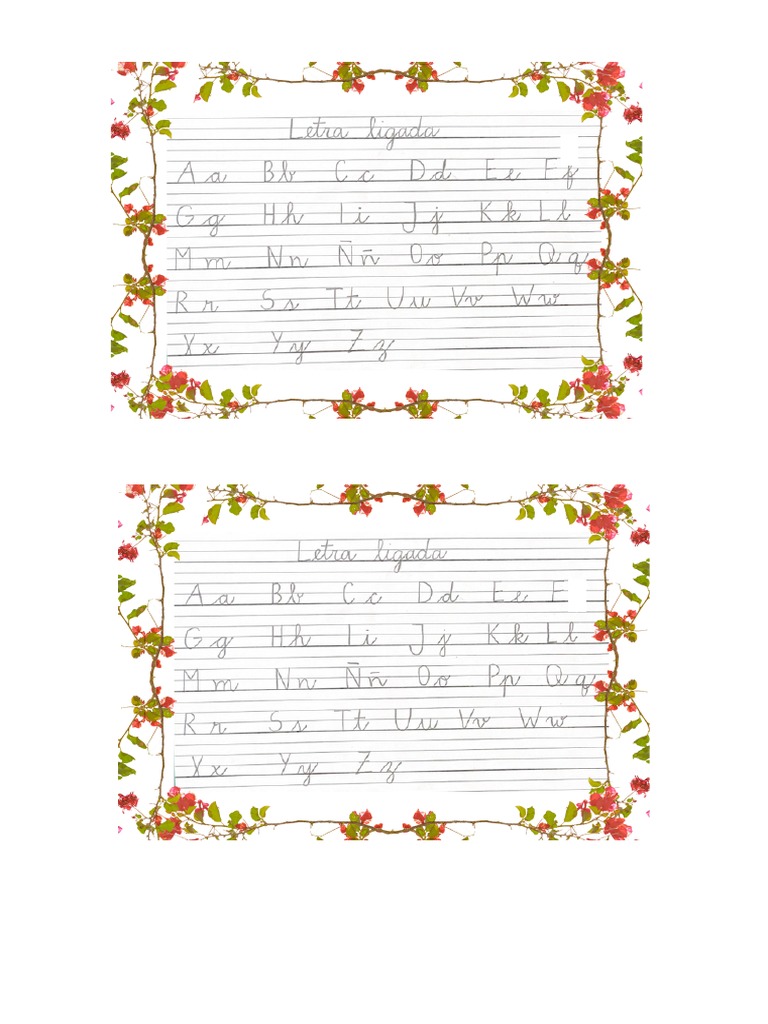 Letra ligada
Aa Bb Cc Dd Ee Ff
Gg Hh Ii Jj Kk Ll
Mm Nn Ññ Oo Pp Qq
Rr Ss Tt Uu Vv Ww
Xx Yy Zz
Letra ligada
Aa Bb Cc Dd Ee F
Gg Hh Ii Jj Kk Ll
Mm Nn Ññ Oo Pp Qq
Rr Ss Tt Uu Vv Ww
Xx Yy Zz